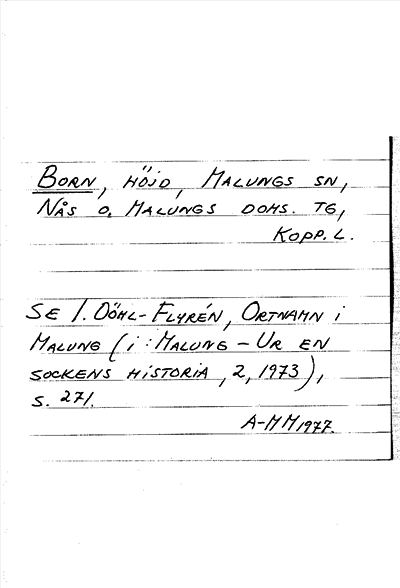 Born, höjd, Malungs sn,
Nås o. Malungs doms. tg,
Kopp. l.
Se I. Döhl-Flyrén, Ortnamn i
Malung (i: Malung – Ur en
sockens historia, 2, 1973),
s. 271.
A-MM 1977.